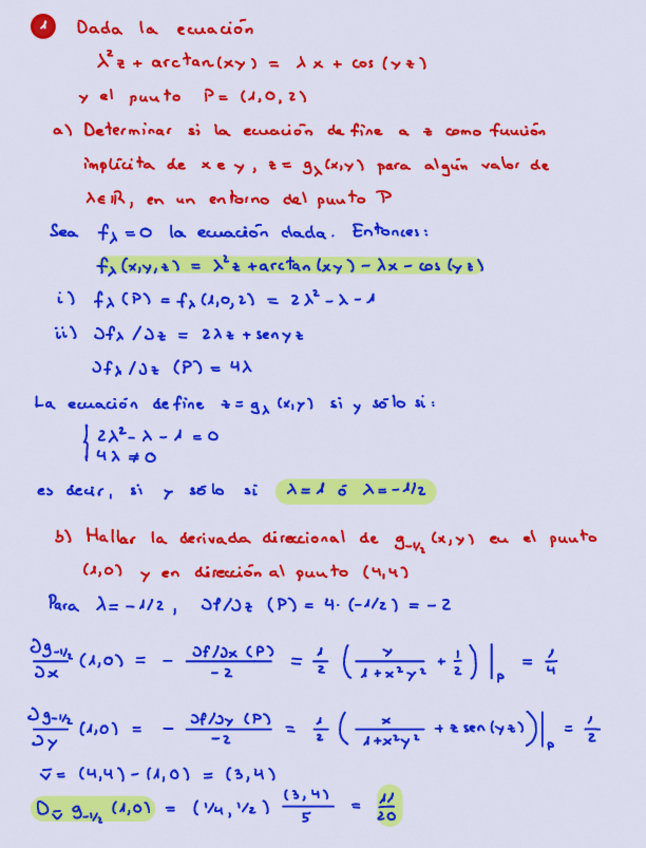 1 Dada la ecuación
λ²z + arctan(xy) = λx + cos(yz)
y el punto P = (1,0,2)
a) Determinar si la ecuación define a z como función
implícita de x e y, z = g_λ(x,y) para algún valor de
λ∈ℝ, en un entorno del punto P
Sea f_λ = 0 la ecuación dada. Entonces:
f_λ(x,y,z) = λ²z + arctan(xy) - λx - cos(yz)
i) f_λ(P) = f_λ(1,0,2) = 2λ² - λ - 1
ii) ∂f_λ/∂z = 2λz + sen yz
∂f_λ/∂z (P) = 4λ
La ecuación define z = g_λ(x,y) si y sólo si:
{ 2λ² - λ - 1 = 0
4λ ≠ 0
es decir, si y sólo si λ = 1 ó λ = -1/2
b) Hallar la derivada direccional de g_{-1/2}(x,y) en el punto
(1,0) y en dirección al punto (4,4)
Para λ = -1/2, ∂f/∂z (P) = 4·(-1/2) = -2
∂g_{-1/2}/∂x (1,0) = - (∂f/∂x (P))/(-2) = 1/2 ( y/(1+x²y²) + 1/2 )|_P = 1/4
∂g_{-1/2}/∂y (1,0) = - (∂f/∂y (P))/(-2) = 1/2 ( x/(1+x²y²) + z sen(yz) )|_P = 1/2
v̄ = (4,4) - (1,0) = (3,4)
D_v̄ g_{-1/2} (1,0) = (1/4, 1/2) (3,4)/5 = 11/20